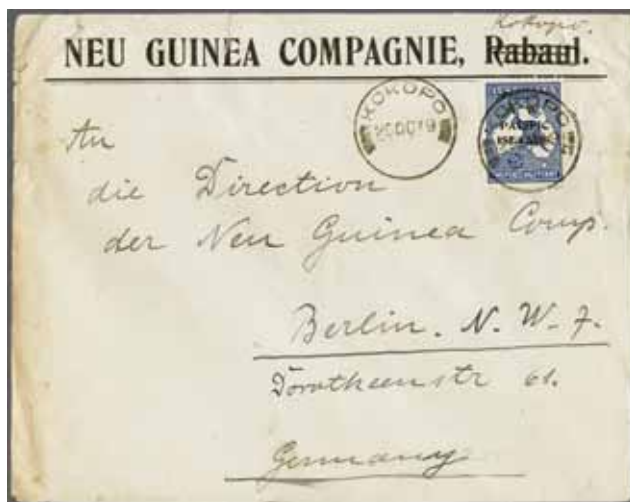 Kokopo.
NEU GUINEA COMPAGNIE, Rabaul.
KOKOPO
OCT 19
KOKOPO
PACIFIC
ISLANDS
An
die Direction
der Neu Guinea Comp.
Berlin. N. W. 7.
Dorotheenstr 61.
Germany